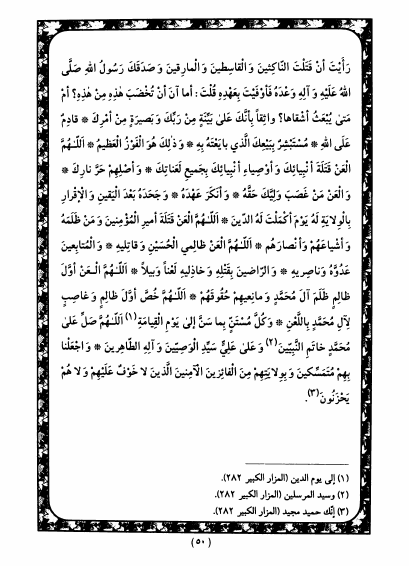 رَأَيْتَ أَنْ قَتَلْتَ النّاكِثينَ وَ الْقاسِطينَ وَ الْمارِقينَ وَ صَدَقَكَ رَسُولُ اللهِ صَلَّى
اللهُ عَلَيْهِ وَ آلِهِ وَعْدَهُ فَأَوْفَيْتَ بِعَهْدِهِ قُلْتَ : أَما آنَ أَنْ تُخْضَبَ هٰذِهِ مِنْ هٰذِهِ؟ أَمْ
مَتىٰ يُبْعَثُ أَشْقاها؟ واثِقاً بِأَنَّكَ عَلىٰ بَيِّنَةٍ مِنْ رَبِّكَ وَ بَصيرَةٍ مِنْ أَمْرِكَ * قادِمٌ
عَلَى اللهِ * مُسْتَبْشِرٌ بِبَيْعِكَ الَّذي بايَعْتَهُ بِهِ * وَ ذٰلِكَ هُوَ الْفَوْزُ الْعَظيمُ * اَللّٰهُمَّ
الْعَنْ قَتَلَةَ أَنْبِيائِكَ وَ أَوْصِياءِ أَنْبِيائِكَ بِجَميعِ لَعَناتِكَ * وَ أَصْلِهِمْ حَرَّ نارِكَ *
وَ الْعَنْ مَنْ غَصَبَ وَلِيَّكَ حَقَّهُ * وَ أَنْكَرَ عَهْدَهُ * وَ جَحَدَهُ بَعْدَ الْيَقينِ وَ الْإِقْرارِ
بِالْوِلايَةِ لَهُ يَوْمَ أَكْمَلْتَ لَهُ الدّينَ * اَللّٰهُمَّ الْعَنْ قَتَلَةَ أَميرِ الْمُؤْمِنينَ وَ مَنْ ظَلَمَهُ
وَ أَشْياعَهُمْ وَ أَنْصارَهُمْ * اَللّٰهُمَّ الْعَنْ ظالِمِي الْحُسَيْنِ وَ قاتِليهِ * وَ الْمُتابِعينَ
عَدُوَّهُ وَ ناصِريهِ * وَ الرّاضينَ بِقَتْلِهِ وَ خاذِليهِ لَعْناً وَبيلاً * اَللّٰهُمَّ الْعَنْ أَوَّلَ
ظالِمٍ ظَلَمَ آلَ مُحَمَّدٍ وَ مانِعيهِمْ حُقُوقَهُمْ * اَللّٰهُمَّ خُصَّ أَوَّلَ ظالِمٍ وَ غاصِبٍ
لِآلِ مُحَمَّدٍ بِاللَّعْنِ * وَ كُلَّ مُسْتَنٍّ بِما سَنَّ إِلىٰ يَوْمِ الْقِيامَةِ (١) اَللّٰهُمَّ صَلِّ عَلىٰ
مُحَمَّدٍ خاتَمِ النَّبِيّينَ (٢) وَ عَلىٰ عَلِيٍّ سَيِّدِ الْوَصِيّينَ وَ آلِهِ الطّاهِرينَ * وَ اجْعَلْنا
بِهِمْ مُتَمَسِّكينَ وَ بِوِلايَتِهِمْ مِنَ الْفائِزينَ الْآمِنينَ الَّذينَ لا خَوْفٌ عَلَيْهِمْ وَ لا هُمْ
يَحْزَنُونَ (٣).
(١) إلى يوم الدين (المزار الكبير ٢٨٢).
(٢) وسيد المرسلين (المزار الكبير ٢٨٢).
(٣) إنّك حميد مجيد (المزار الكبير ٢٨٢).
(٥٠)